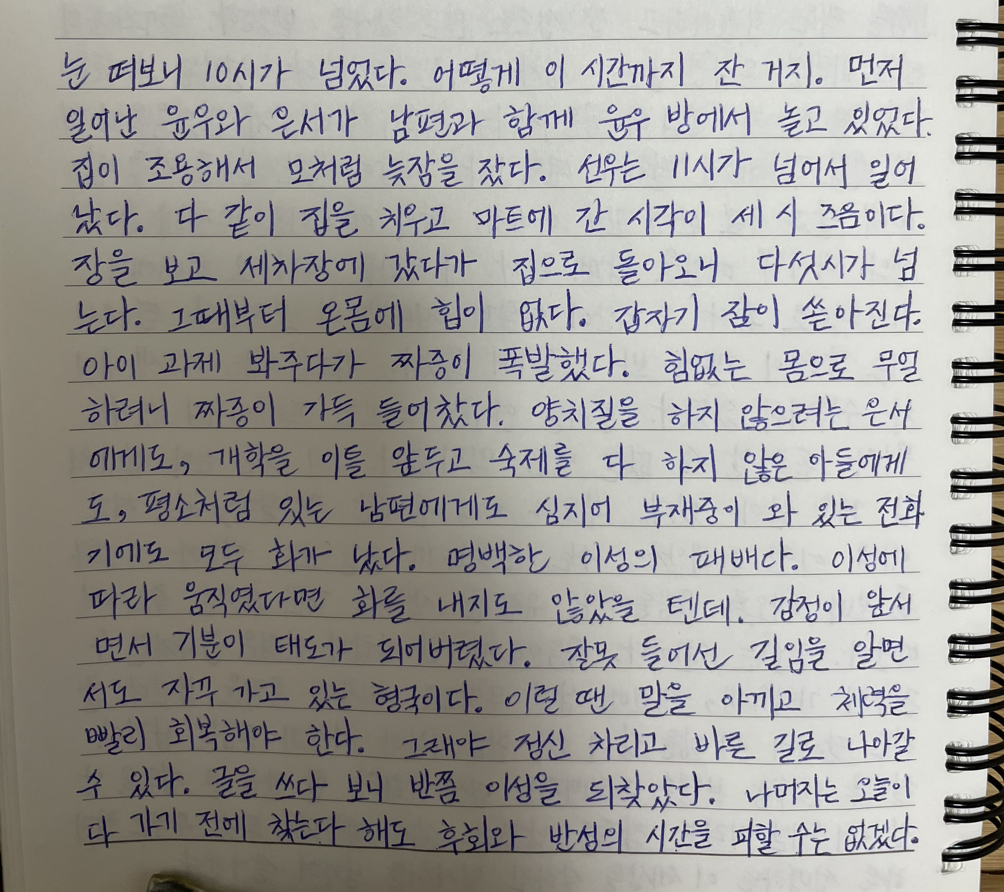 눈 떠보니 10시가 넘었다. 어떻게 이 시간까지 잔 거지. 먼저
일어난 윤우와 은서가 남편과 함께 윤우 방에서 놀고 있었다.
집이 조용해서 모처럼 늦잠을 잤다. 선우는 11시가 넘어서 일어
났다. 다 같이 집을 치우고 마트에 간 시각이 세 시 즈음이다.
장을 보고 세차장에 갔다가 집으로 돌아오니 다섯시가 넘
는다. 그때부터 온몸에 힘이 없다. 갑자기 잠이 쏟아진다.
아이 과제 봐주다가 짜증이 폭발했다. 힘없는 몸으로 무얼
하려니 짜증이 가득 들어찼다. 양치질을 하지 않으려는 은서
에게도, 개학을 이틀 앞두고 숙제를 다 하지 않은 아들에게
도, 평소처럼 있는 남편에게도 심지어 부재중이 와 있는 전화
기에도 모두 화가 났다. 명백한 이성의 패배다. 이성에
따라 움직였다면 화를 내지도 않았을 텐데. 감정이 앞서
면서 기분이 태도가 되어버렸다. 잘못 들어선 길임을 알면
서도 자꾸 가고 있는 형국이다. 이럴 땐 말을 아끼고 체력을
빨리 회복해야 한다. 그래야 정신 차리고 바른 길로 나아갈
수 있다. 글을 쓰다 보니 반쯤 이성을 되찾았다. 나머지는 오늘이
다 가기 전에 찾는다 해도 후회와 반성의 시간을 피할 수는 없겠다.